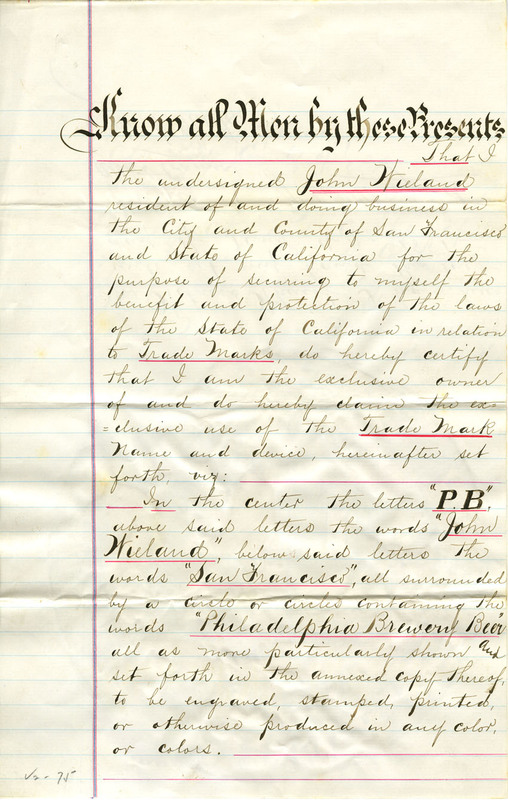 Know all Men by these Presents
That I
the undersigned John Wieland
resident of and doing business in
the City and County of San Francisco
and State of California for the
purpose of securing to myself the
benefit and protection of the laws
of the State of California in relation
to Trade Marks, do hereby certify
that I am the exclusive owner
of and do hereby claim the ex-
=clusive use of the Trade Mark
Name and device, hereinafter set
forth, viz:
In the center the letters "P.B",
above said letters the words "John
Wieland", below said letters the
words "San Francisco", all surrounded
by a circle or circles containing the
words "Philadelphia Brewery Beer"
all as more particularly shown and
set forth in the annexed copy thereof,
to be engraved, stamped, printed,
or otherwise produced in any color,
or colors.